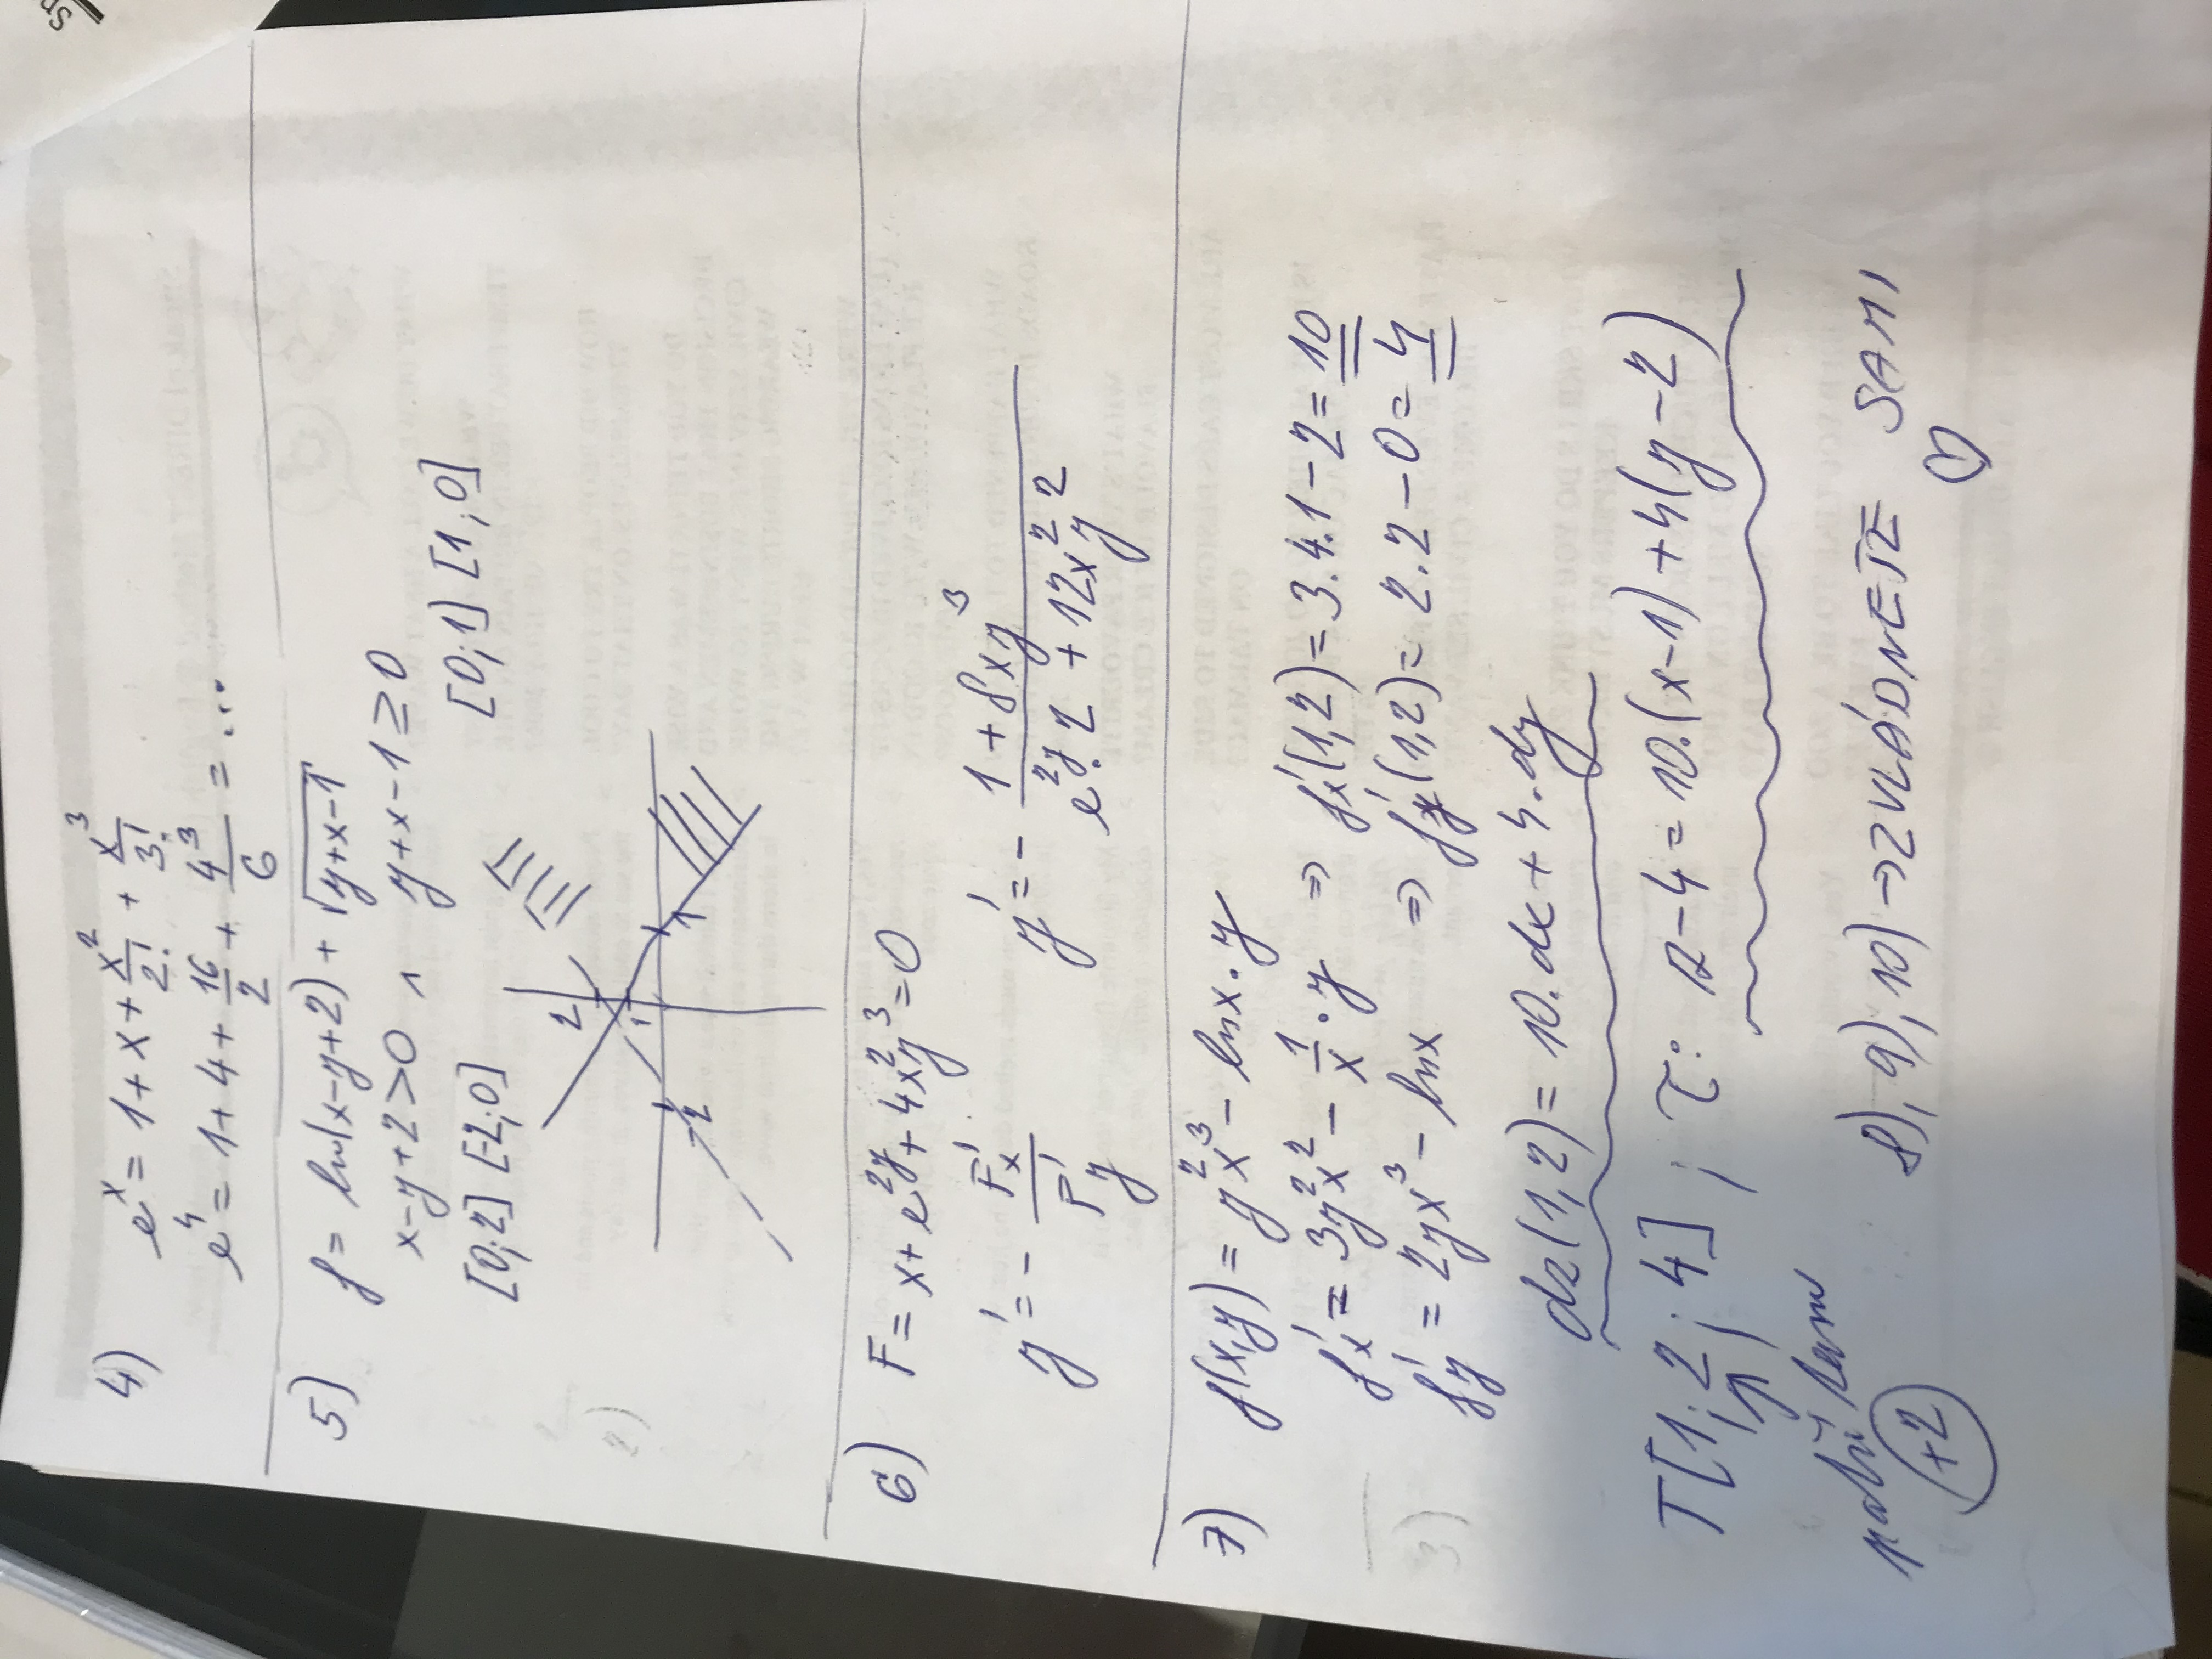 4) e^x = 1 + x + x^2/2! + x^3/3!
e^4 = 1 + 4 + 16/2 + 4^3/6 = ...
5) f = ln(x-y+2) + √(y+x-1)
x-y+2>0 ∧ y+x-1≥0
[0;2] [-2;0] [0;1] [1;0]
2
1
-2
1
6) F = x + e^(2y) + 4x^2y^3 = 0
y' = - F'x/F'y y' = - (1 + 8xy^3)/(e^(2y)·2 + 12x^2y^2)
7) f(x,y) = y^2x^3 - lnx·y
f'x = 3y^2x^2 - 1/x·y ⇒ f'x(1,2) = 3·4·1-2 = 10
f'y = 2yx^3 - lnx ⇒ f'y(1,2) = 2·2-0 = 4
dz(1,2) = 10·dx + 4·dy
T[1;2;4] ; τ: z-4 = 10·(x-1) + 4(y-2)
+2
8), 9), 10) → ZVLÁDNETE SAMI
♡
2)
3)